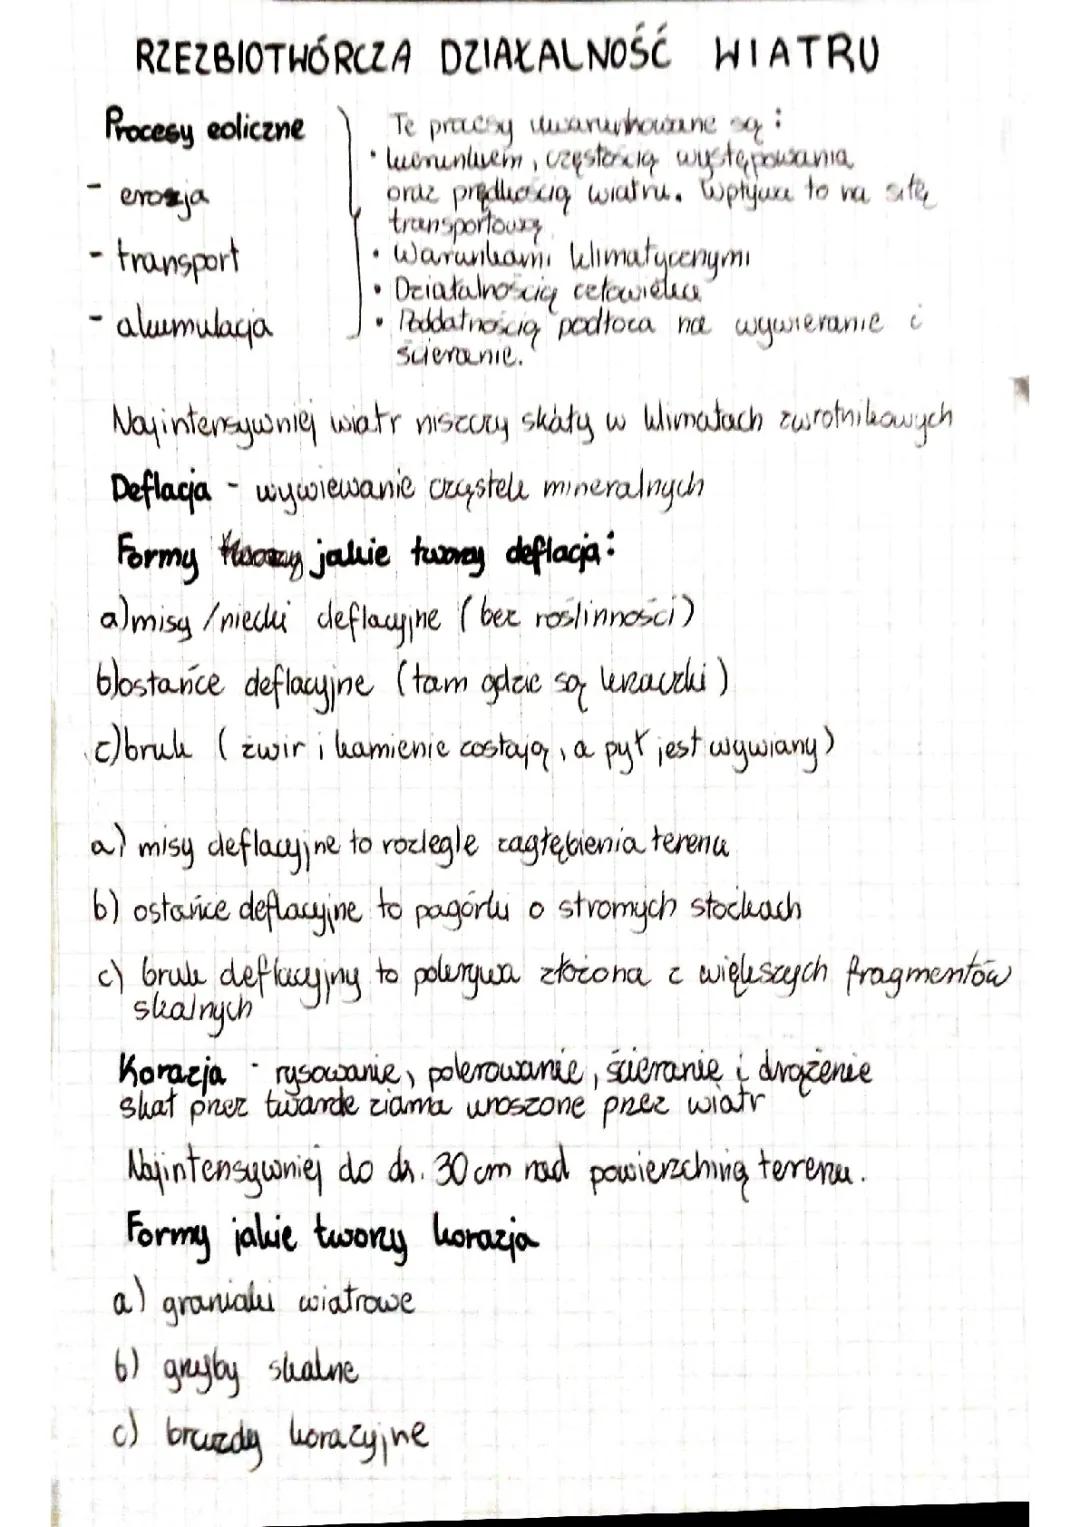 RZEZBIOTWÓRCZA DZIAŁALNOŚĆ WIATRU
Procesy eoliczne
- erozja
- transport
- akumulacja
Te procesy uwarunkowane są:
• kierunkiem, częstością występowania
oraz prędkością wiatru. Wpływa to na siłę
transportową
• Warunkami klimatycznymi
• Działalnością człowieka
• Poddatnością podłoża na wywieranie i
ścieranie.
Najintensywniej wiatr niszczy skały w klimatach zwrotnikowych
Deflacja - wywiewanie cząstek mineralnych
Formy jakie tworzy deflacja:
a) misy / niecki deflacyjne (bez roślinności)
b) ostańce deflacyjne (tam gdzie są krzaczki)
c) bruk (żwir i kamienie zostają, a pył jest wywiany)
a) misy deflacyjne to rozległe zagłębienia terenu
b) ostańce deflacyjne to pagórki o stromych stockach
c) bruk deflacyjny to pokrywa złożona z większych fragmentów
skalnych
Korazja - rysowanie, polerowanie, ścieranie i drążenie
skał przez twarde ziarna unoszone przez wiatr
Najintensywniej do ok. 30 cm nad powierzchnią terenu.
Formy jakie tworzy korazja
a) graniaki wiatrowe
b) grzyby skalne
c) bruzdy korazyjne